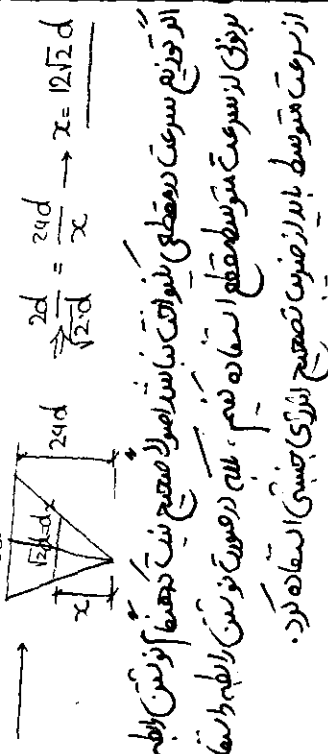 24d
x
√2d
2d/√2·d = 24d/x → x = 12√2 d
اگر توزیع سرعت در مقطعی یکنواخت نباشد اصولاً صحیح نیست که هنگام نوشتن رابطه
برنولی از سرعت متوسط مقطع استفاده کنیم، لذا در صورت نوشتن رابطه و استفاده
از سرعت متوسط باید از ضریب تصحیح انرژی جنبشی استفاده کرد.